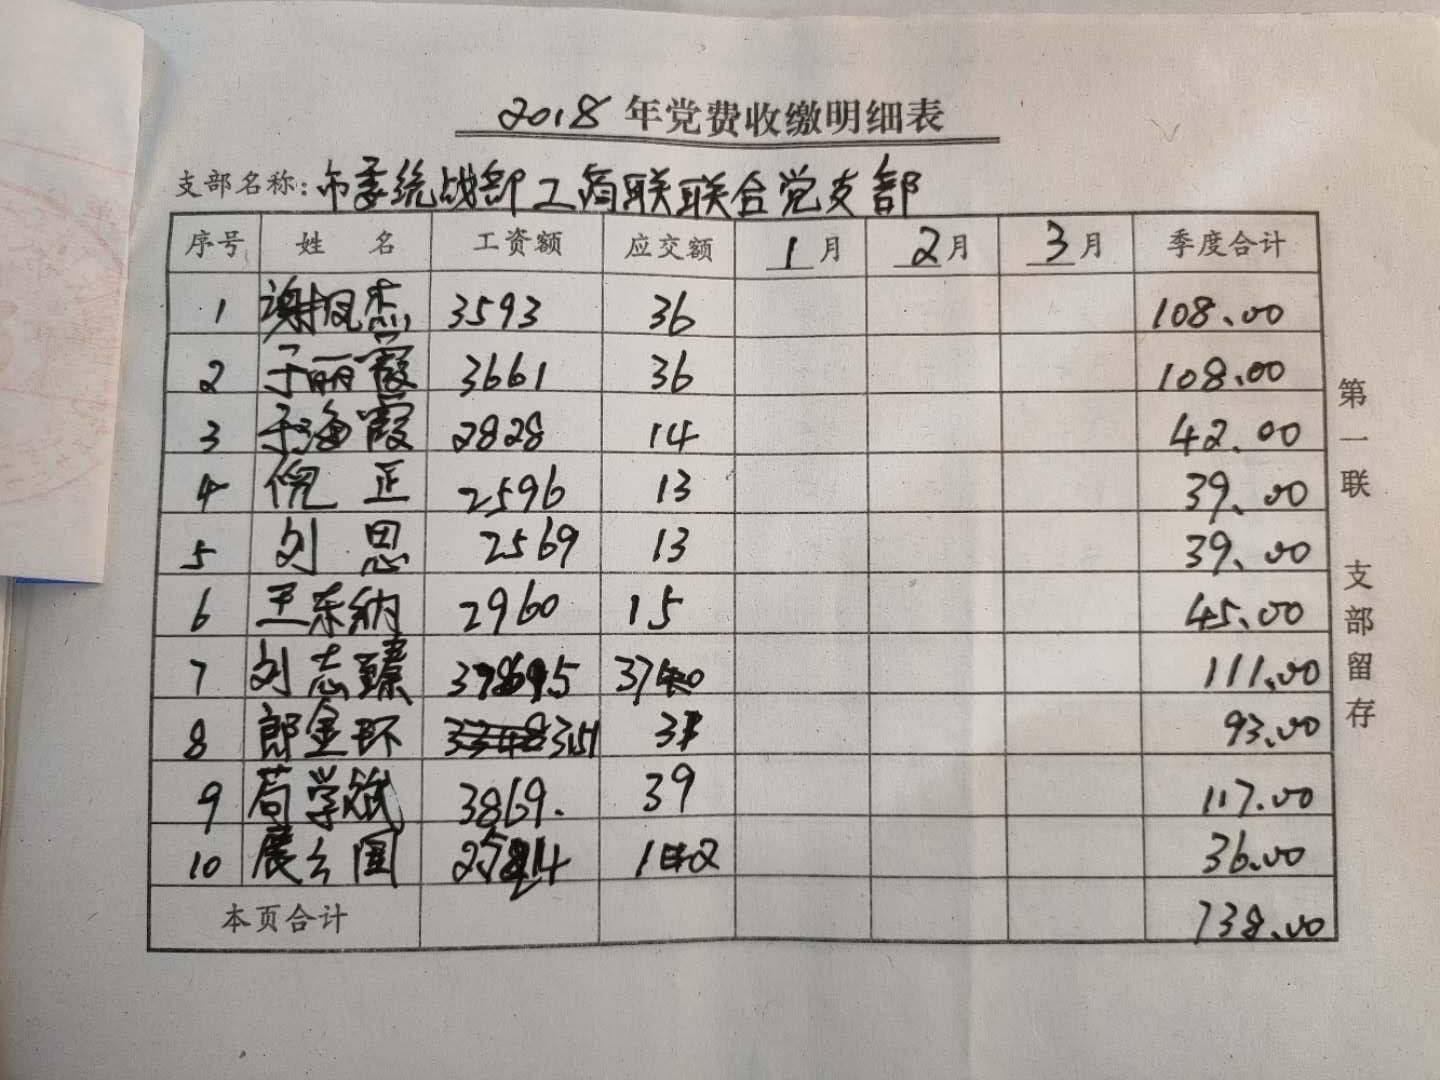 2018年党费收缴明细表
支部名称:市委统战部工商联联合党支部
序号 姓 名 工资额 应交额 1月 2月 3月 季度合计
1 谢振杰 3593 36 108.00
2 于丽霞 3661 36 108.00
3 于海霞 2828 14 42.00
4 倪 正 2596 13 39.00
5 刘 思 2569 13 39.00
6 王东纳 2960 15 45.00
7 刘志臻 37 111.00
8 郎金环 3151 31 93.00
9 苟学斌 3869. 39 117.00
10 展云国 12 36.00
本页合计 738.00
第一联 支部留存